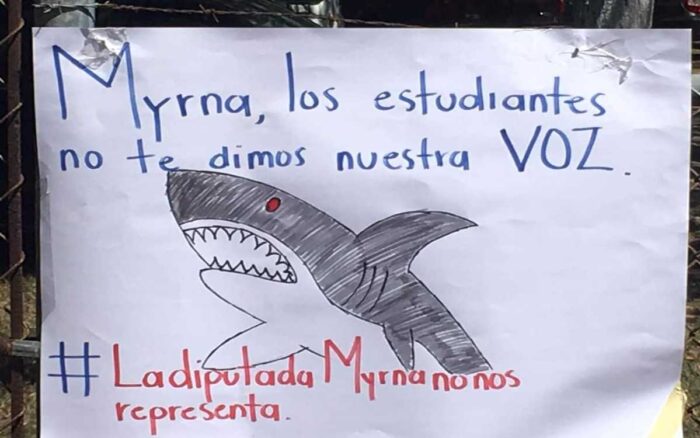 Myrna, los estudiantes
no te dimos nuestra VOZ.
# La diputada Myrna no nos
representa.